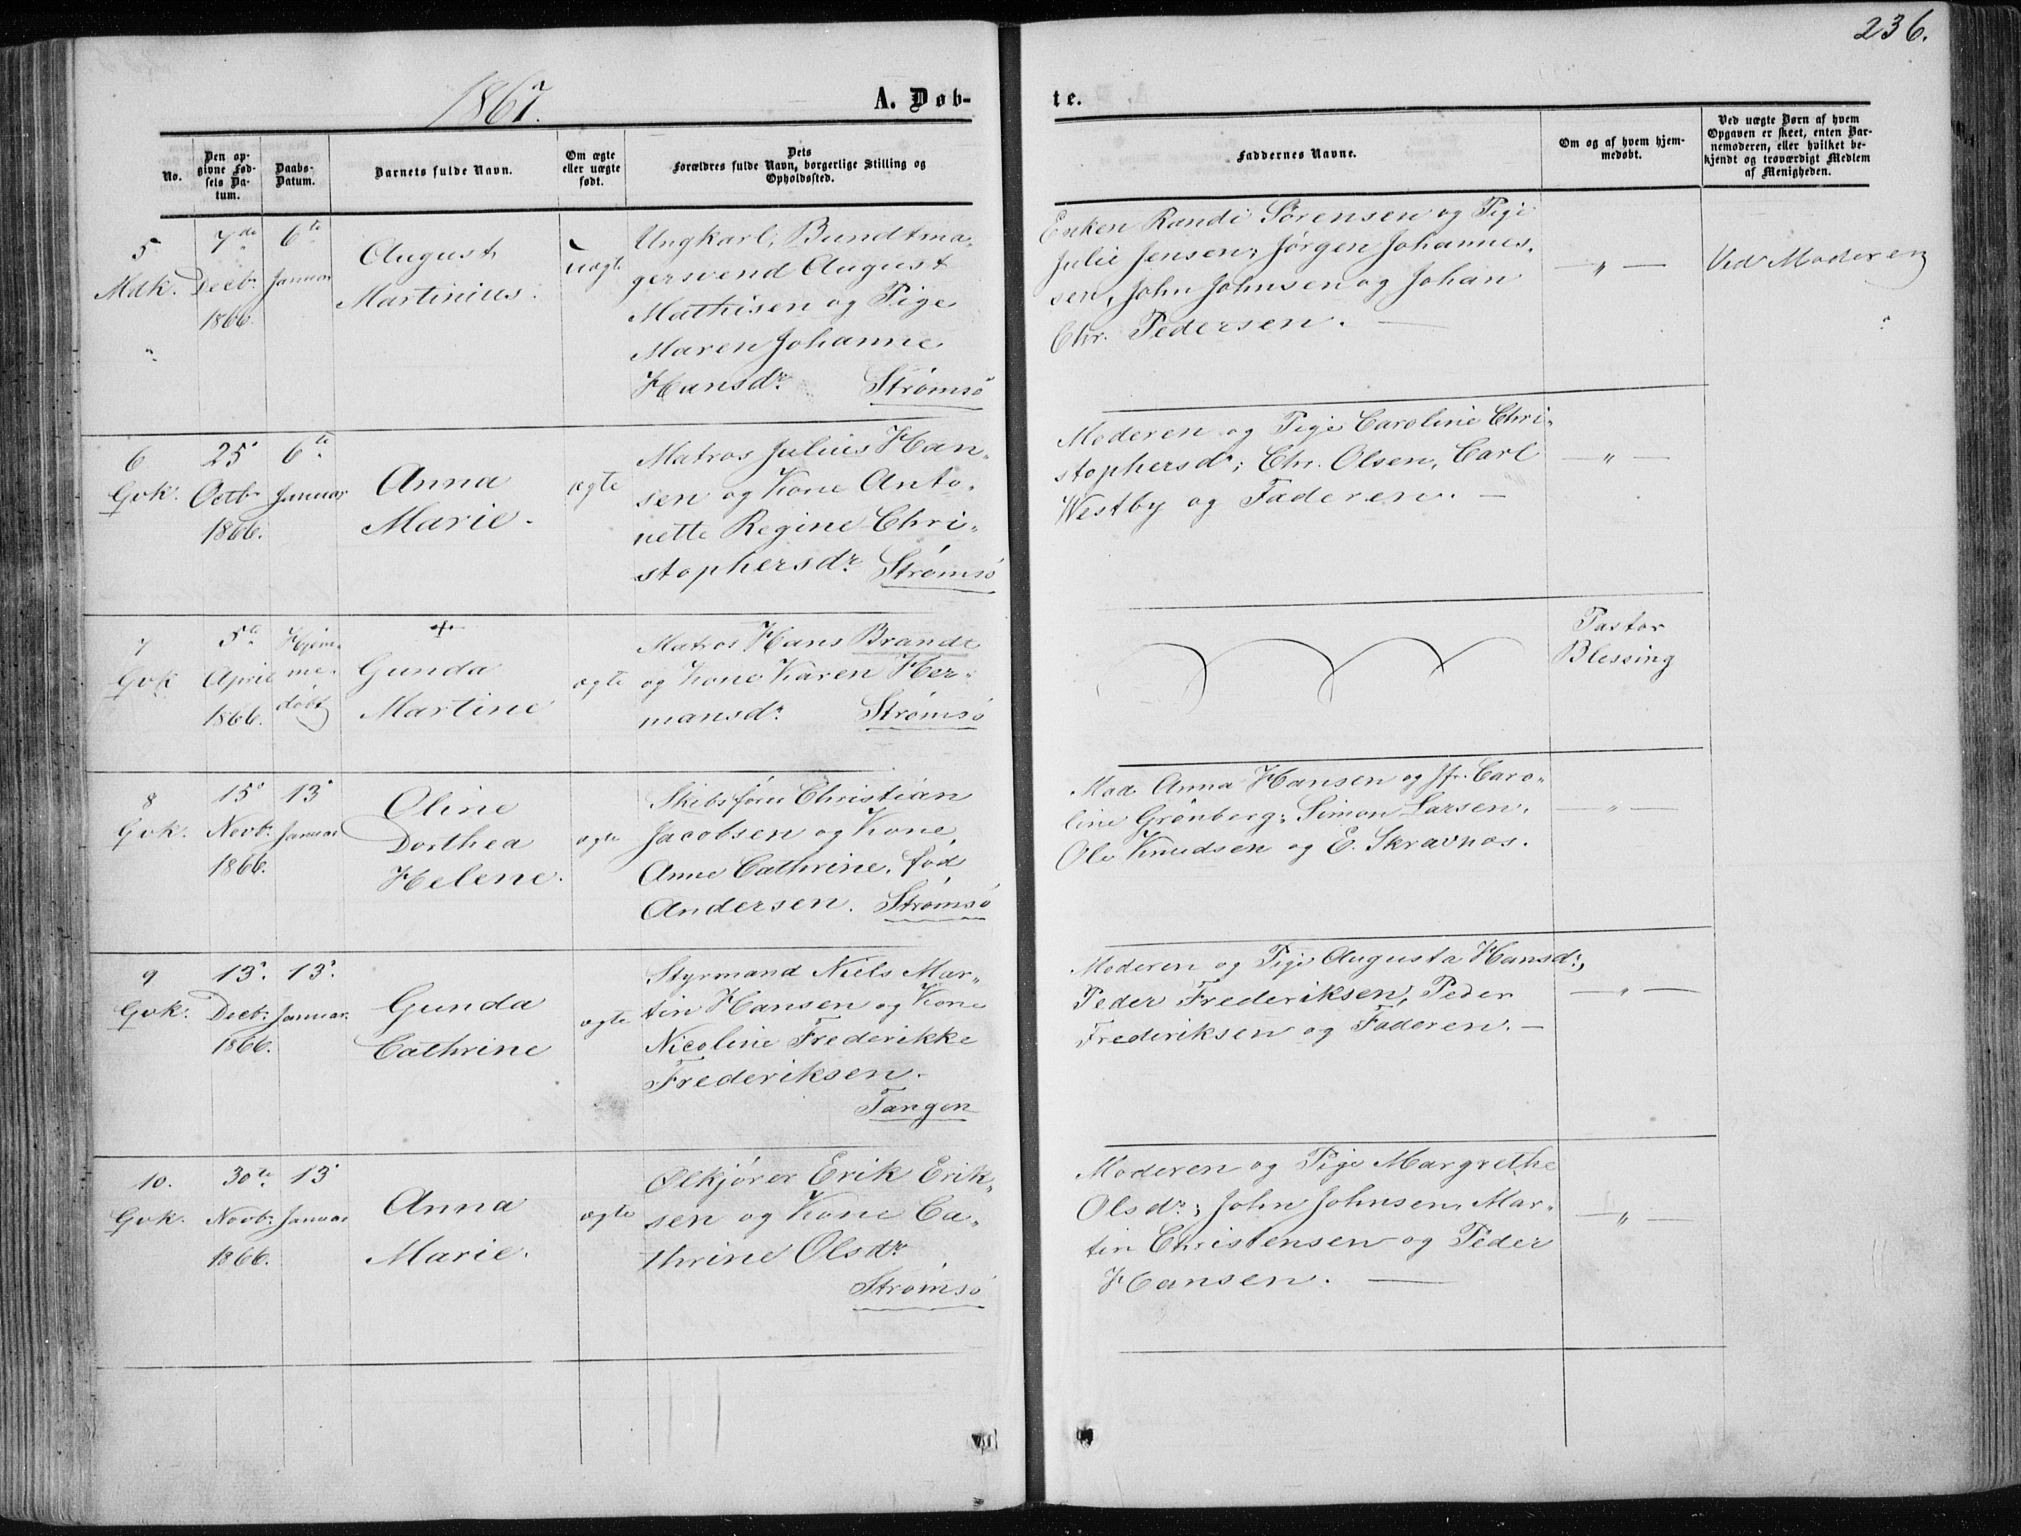 236.
1867.
A. Døb-
te.
No.
Den op-
givne Fød-
sels Da-
tum.
Daabs-
Datum.
Barnets fulde Navn.
Om ægte
eller uægte
født.
Dets
Forældres fulde Navn, borgerlige Stilling og
Opholdssted.
Faddernes Navne.
Om og af hvem hjem-
medøbt.
Ved uægte Børn af hvem
Opgaven er skeet, enten Bar-
nemoderen, eller hvilket be-
kjendt og troværdigt Medlem
af Menigheden.
5
Mdk.
7de
Decbr.
1866.
6te
Januar
August
Martinius.
uægte
Ungkarl, Bundtma-
gersvend August
Mathisen og Pige
Maren Johanne
Hansdr. Strømsö
Enken Randi Sörensen og Pige
Julie Jensen; Jørgen Johannes-
sen, John Johnsen og Johan
Chr. Pedersen. —
— " —
Ved Moderen
6
Gvk.
25'
Octbr.
1866.
6te
Januar
Anna
Marie.
ægte
Matros Julius Han-
sen og Kone Anto-
nette Regine Chri-
stophersdr. Strømsö
Moderen og Pige Caroline Chri-
stophersdr; Chr. Olsen, Carl
Westby og Faderen. —
— " —
7
Gvk
5te
April
1866.
Hjem-
me-
døbt
+
Gunda
Martine
ægte
Matros Hans Brande
og Kone Karen Her-
mansdr. Strömsö
Pastor
Blessing
8
Gvk.
15'
Novbr.
1866.
13'
Januar
Oline
Dorthea
Helene.
ægte
Skibsfører Christian
Jacobsen og Kone
Anne Cathrine, fød
Andersen. Strømsö
Mad Anna Hansen og Jfr. Caro-
line Grönberg; Simon Larsen,
Ole Knudsen og E. Skravnæs.
— " —
9
Gvk.
13'.
Decbr.
1866.
13'.
Januar.
Gunda
Cathrine
ægte
Styrmand Niels Mar-
tin Hansen og Kone
Nicoline Frederikke
Frederiksen.
Tangen
Moderen og Pige Augusta Hansdr;
Peder Frederiksen, Peder
Frederiksen og Faderen. —
— " —
10.
Gvk.
30te
Novbr.
1866.
13'
Januar
Anna
Marie.
ægte
Ølkjører Erik Erik-
sen og Kone Ca-
thrine Olsdr.
Strømsö
Moderen og Pige Margrethe
Olsdr; John Johnsen, Mar-
tin Christensen og Peder
Hansen. —
— " —